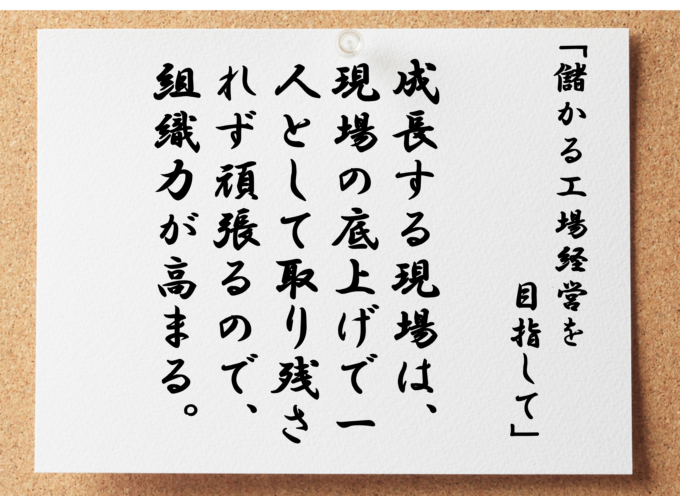 「儲かる工場経営を
目指して」
成長する現場は、
現場の底上げで一
人として取り残さ
れず頑張るので、
組織力が高まる。